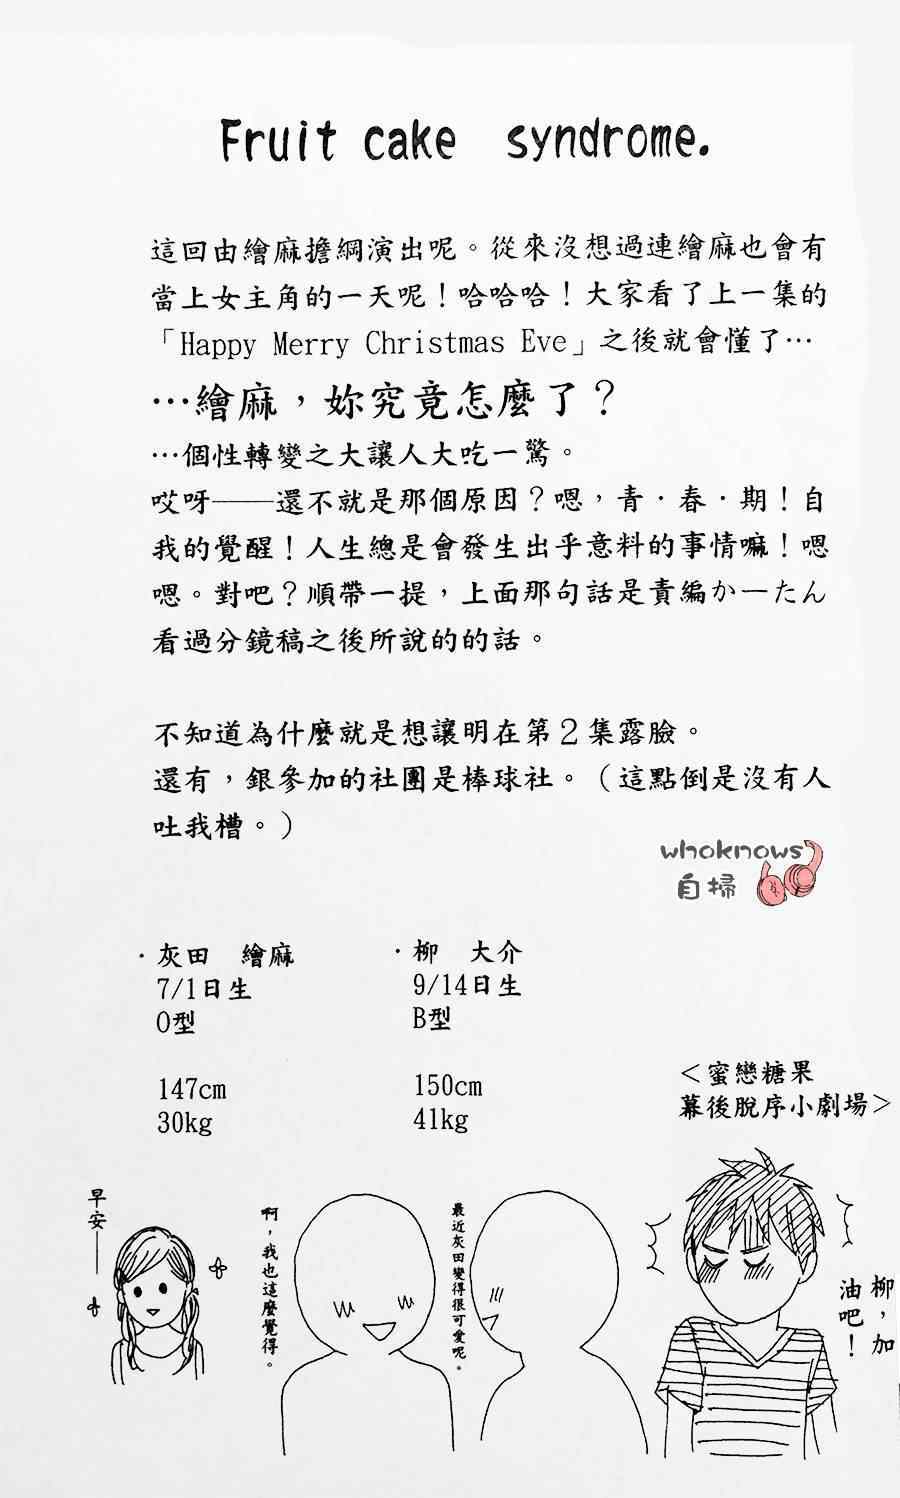 Fruit cake syndrome.
這回由繪麻擔綱演出呢。從來沒想過連繪麻也會有
當上女主角的一天呢！哈哈哈！大家看了上一集的
「Happy Merry Christmas Eve」之後就會懂了…
…繪麻，妳究竟怎麼了？
…個性轉變之大讓人大吃一驚。
哎呀——還不就是那個原因？嗯，青．春．期！自
我的覺醒！人生總是會發生出乎意料的事情嘛！嗯
嗯。對吧？順帶一提，上面那句話是責編かーたん
看過分鏡稿之後所說的的話。
不知道為什麼就是想讓明在第２集露臉。
還有，銀參加的社團是棒球社。（這點倒是沒有人
吐我槽。）
whoknows
自掃
·灰田　繪麻
7/1日生
O型
147cm
30kg
·柳　大介
9/14日生
B型
150cm
41kg
＜蜜戀糖果
幕後脫序小劇場＞
早安——
啊，我也這麼覺得。
最近灰田變得很可愛呢。
柳，加
油吧！